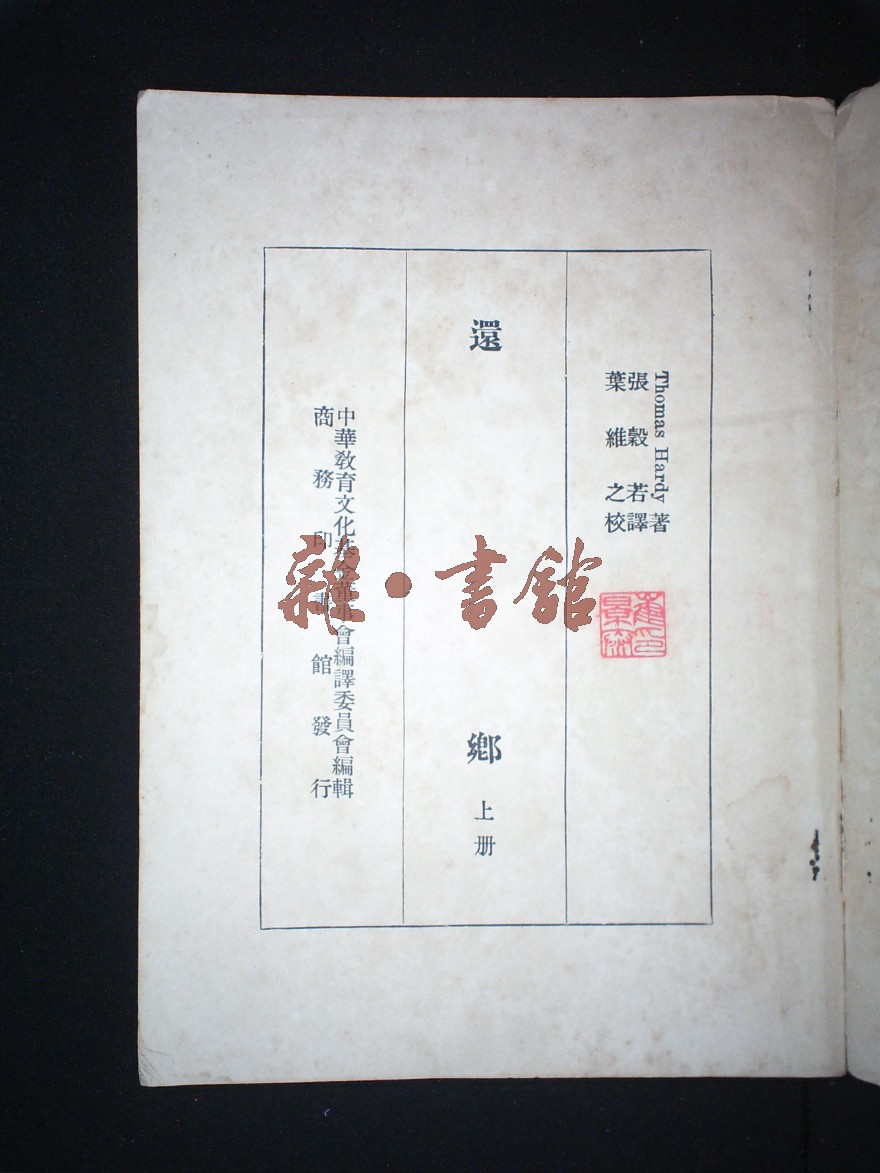 Thomas Hardy 著
張穀若譯
葉維之校
還鄉
上册
中華教育文化基金董事會編譯委員會編輯
商務印書館發行
雜·書館